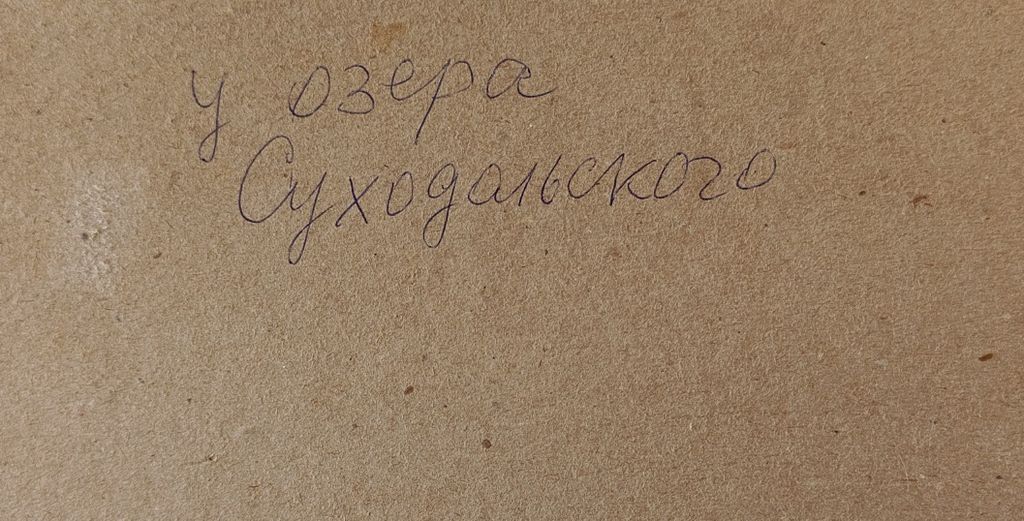 у озера
Суходольского